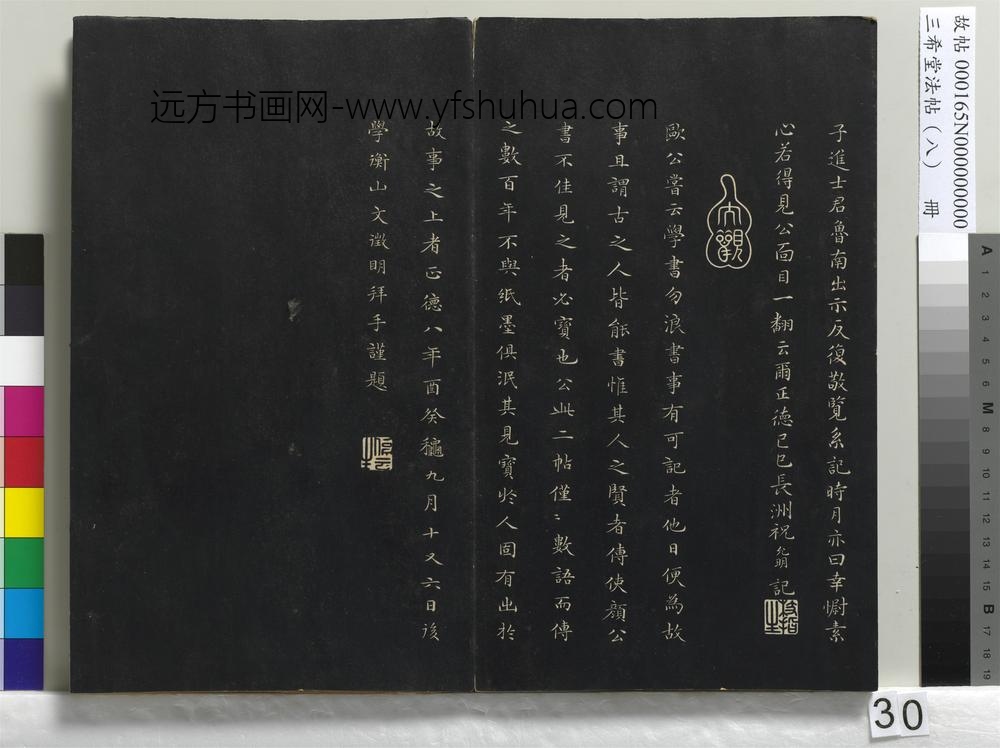 子進士君魯南出示反復敬覽系記時月亦曰幸慰素
心若得見公面目一翻云爾正德己巳長洲祝允明記
大觀
歐公嘗云學書勿浪書事有可記者他日便為故
事且謂古之人皆能書惟其人之賢者傳使顔公
書不佳見之者必寶也公此二帖僅〻數語而傳
之數百年不與紙墨俱泯其見寶於人固有出於
故事之上者正德八年酉癸龝九月十又六日後
學衡山文徵明拜手謹題
远方书画网-www.yfshuhua.com
故帖 000165N000000000
三希堂法帖(八) 冊
30
A 1 2 3 4 5 6 M 8 9 10 11 12 13 14 15 B 17 18 19